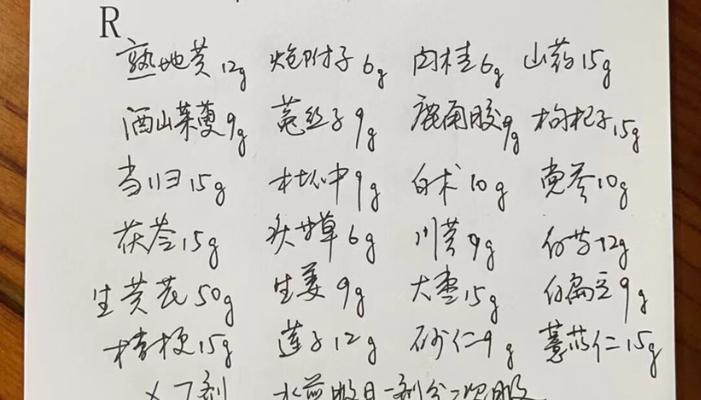 R
熟地黄12g 炮附子6g 肉桂6g 山药15g
酒山茱萸9g 菟丝子9g 鹿角胶9g 枸杞子15g
当归15g 杜仲9g 白术10g 党参10g
茯苓15g 炙甘草6g 川芎9g 白芍12g
生黄芪50g 生姜9g 大枣15g 白扁豆9g
桔梗15g 莲子12g 砂仁9g 薏苡仁15g
×7剂 水煎服日一剂分二次服